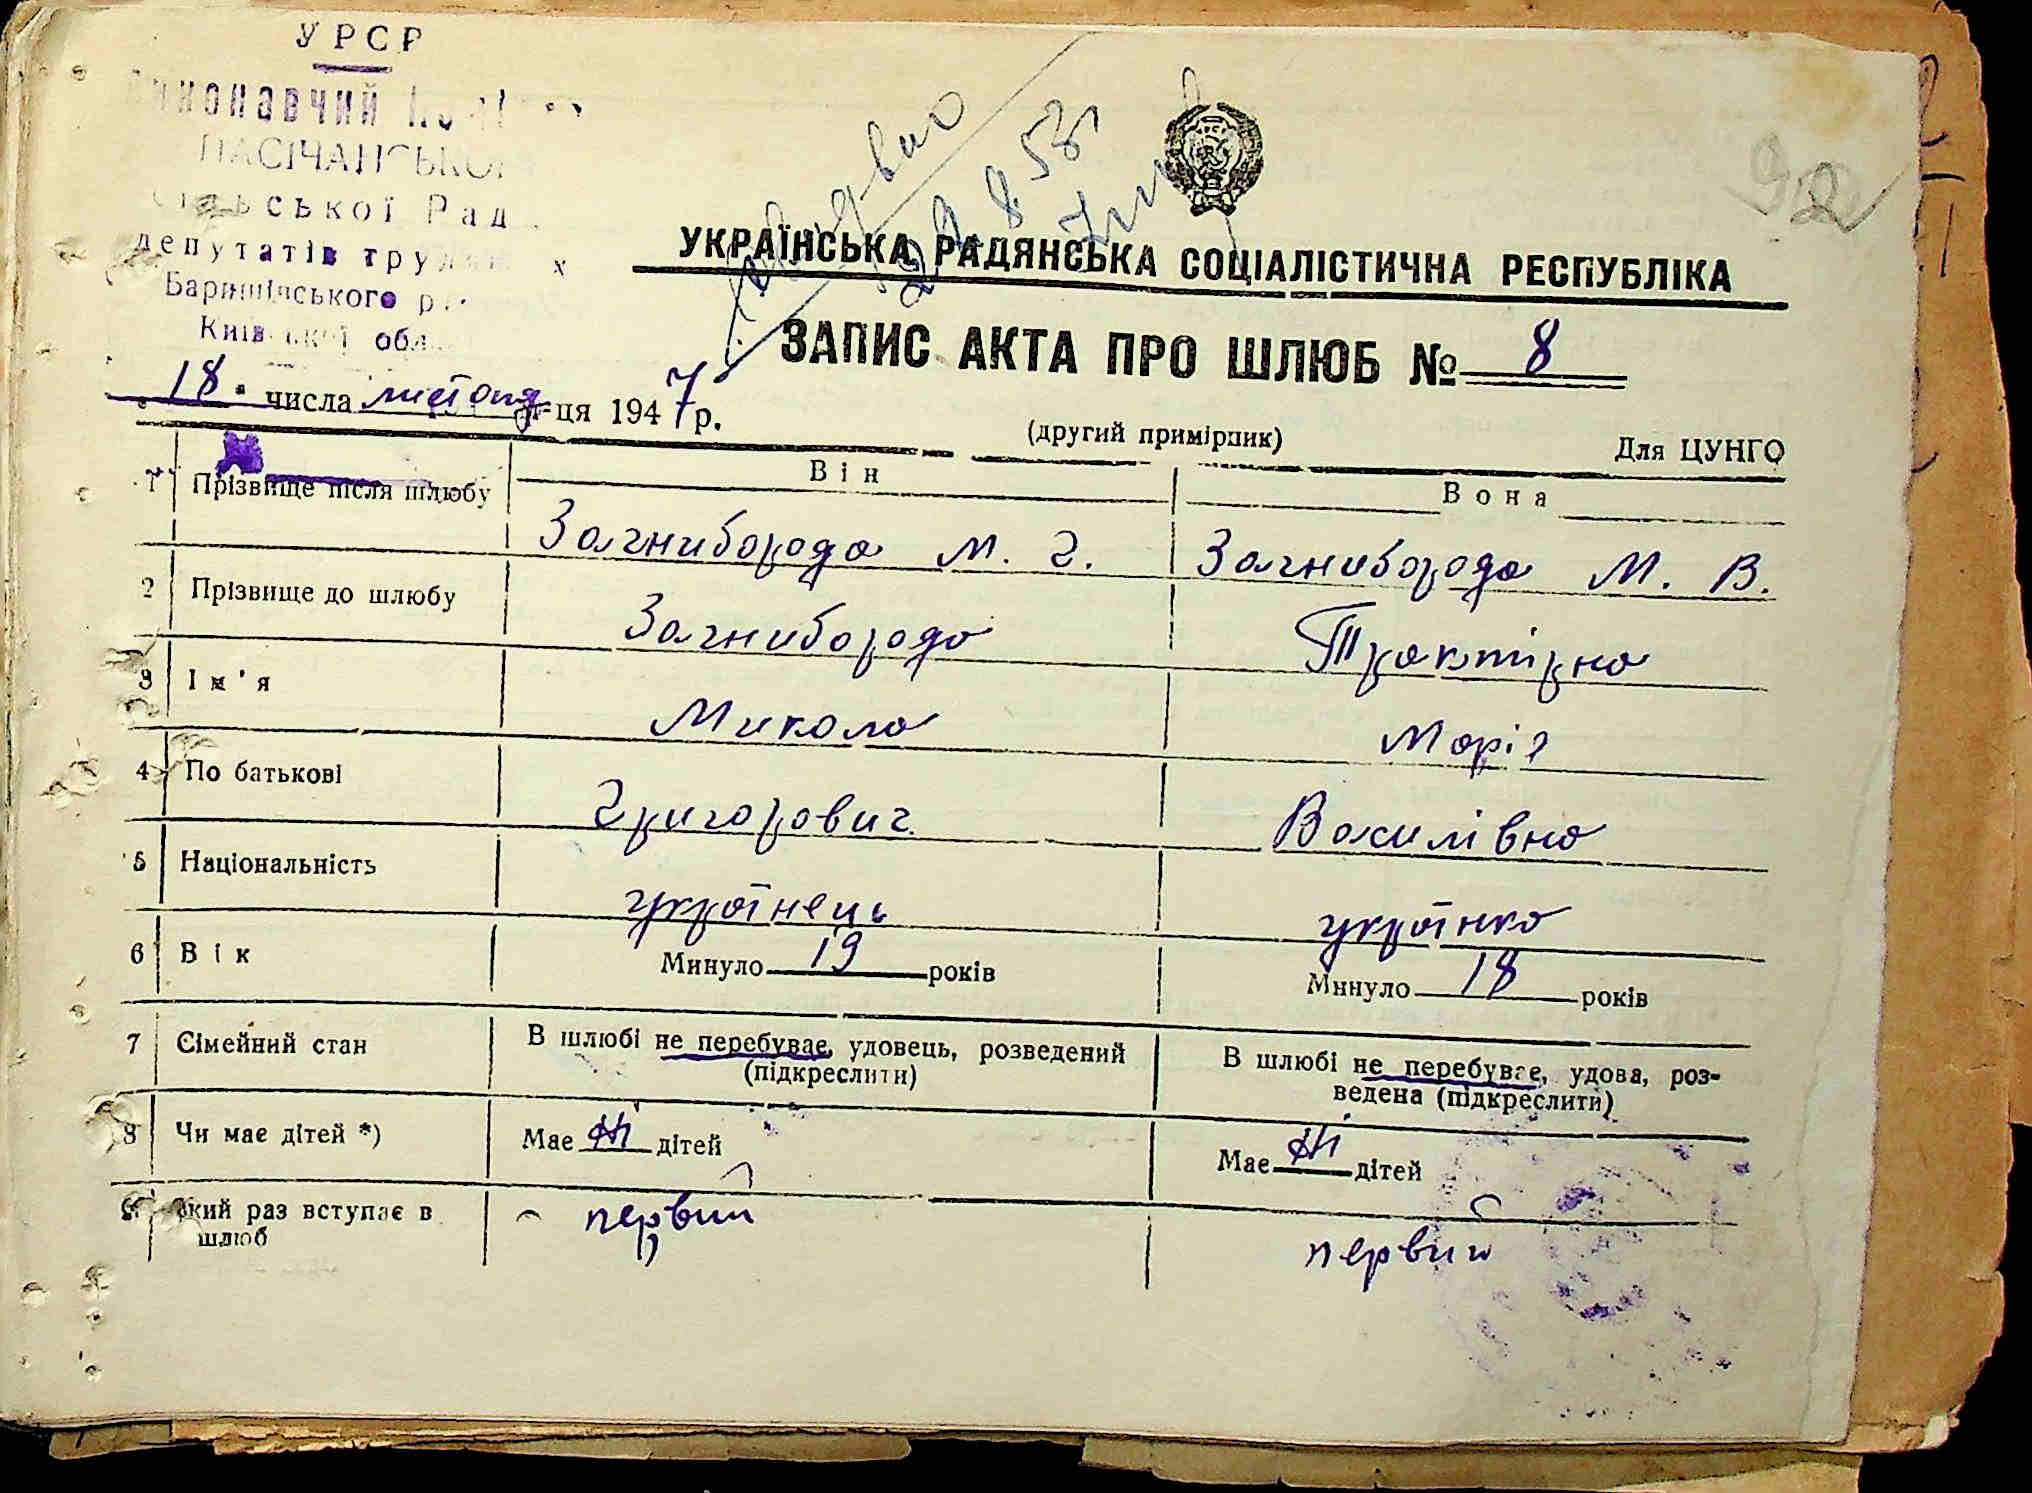 УРСР
ПАСІЧАНСЬКОЇ
сільської Рад
депутатів трудящих
Баришівського р
Київської обл
92
29.8.53г
УКРАЇНСЬКА РАДЯНСЬКА СОЦІАЛІСТИЧНА РЕСПУБЛІКА
ЗАПИС АКТА ПРО ШЛЮБ № 8
18 числа листопад м-ця 1947 р.
(другий примірник) Для ЦУНГО
Він Вона
1 Прізвище після шлюбу Загниборода М. Г. Загниборода М. В.
2 Прізвище до шлюбу Загниборода Трактірна
3 Ім'я Микола Марія
4 По батькові Григорович Василівна
5 Національність українець українка
6 Вік Минуло 19 років Минуло 18 років
7 Сімейний стан В шлюбі не перебуває, удовець, розведений (підкреслити) В шлюбі не перебуває, удова, роз-
ведена (підкреслити)
8 Чи має дітей *) Має ні дітей Має ні дітей
9 Який раз вступає в шлюб первий первий